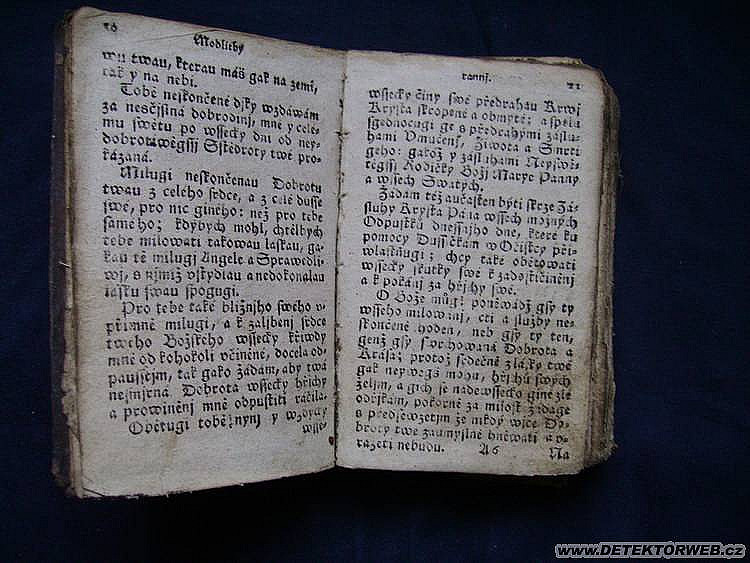 20 Modlitby
wu twau, kterau máš gak na zemi,
tak y na nebi.
Tobě neskončené djky wzdáwám
za nesčjslná dobrodinj, mně y cele-
mu swětu po wssecky dni od ney-
dobrotiwěgssij Sstědroty twé pro-
kázaná.
Milugi neskončenau Dobrotu
twau z celého srdce, a z celé dusse
swé, pro nic giného: než pro tebe
samého; kdybych mohl, chtělbych
tebe milowati takowau láskau, ga-
kau tě milugj Angele a Sprawedli-
wj, s njmiž wssydlau a nedokonalau
lásku swau spogugi.
Pro tebe také bližnjho swého v-
přjmně milugi, a k zaljbenj srdce
twého Božského wssecky křiwdy
mně od kohokoli včiněné, docela od-
pausstjm, tak gako žádám, aby twá
nesmjrná Dobrota wssecky hřjchy
a prowiněnj mně odpustiti ráčila.
Obětugi tobě nynj y wždycky
wsse-
rannj. 21
wssecky činy swé předrahau Krwj
Krysta skropené a obmyté: a spolu
sgednocugi ge s předrahými záslu-
hami Vmučenj, Žiwota a Smrti
geho: gakož y záslauhami Neyswě-
těgssj Rodičky Božj Marye Panny
a wssech Swatých.
Žádám též aučasten býti skrze Zá-
sluhy Krysta Pána wssech možných
Odpustků dnessnjho dne, které ku
pomocy Dussičkám w Očistcy při-
wlastňugi; chcy také obětowati
wssecky skutky swé k zadostičiněnj
a k pokánj za hřjchy swé.
O Bože můg! poněwádž gsy ty
wsseho milowánj, cti a služby ne-
skončeně hoden, neb gsy ty ten,
genž gsy Swrchowaná Dobrota a
Krása; protož srdečně z lásky twé
gak neywegs mohu, hřjchů swých
željm, a gich se nadewssecko giné zle
odřjkám, pokorně za milost žádage
s předsewzetjm že nikdy wjce Do-
broty twé zaumyslně hněwati a v-
rážeti nebudu.
A6 Na
www.DETEKTORWEB.cz